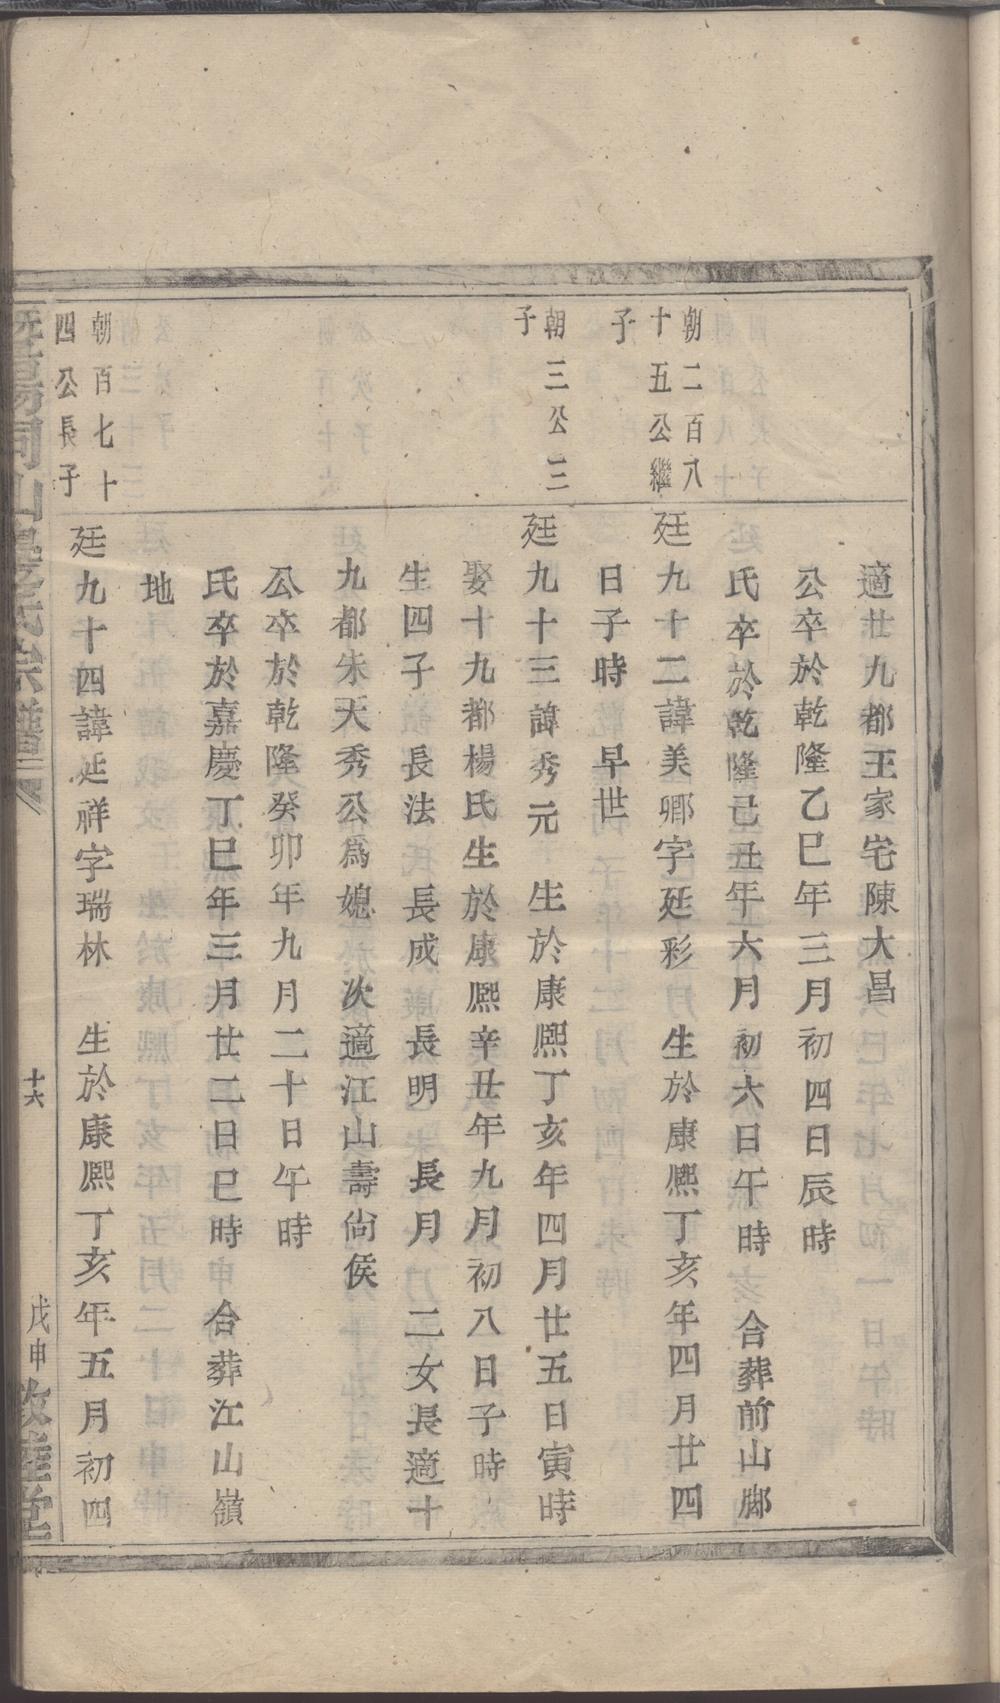 適廿九都王家宅陳大昌
公卒於乾隆乙巳年三月初四日辰時
氏卒於乾隆己丑年六月初六日午時 合葬前山脚
朝二百八
十五公繼
子
廷九十二諱美卿字延彩 生於康熙丁亥年四月廿四
日子時 早世
朝三公三
子
廷九十三諱秀元 生於康熙丁亥年四月廿五日寅時
娶十九都楊氏生於康熙辛丑年九月初八日子時
生四子 長法 長成 長明 長月 二女長適十
九都朱天秀公為媳 次適江山壽尚侯
公卒於乾隆癸卯年九月二十日午時
氏卒於嘉慶丁巳年三月廿二日巳時 合葬江山嶺
地
朝百七十
四公長子
廷九十四諱延祥字瑞林 生於康熙丁亥年五月初四
同山 氏宗譜
十六
戊申 敦睦堂